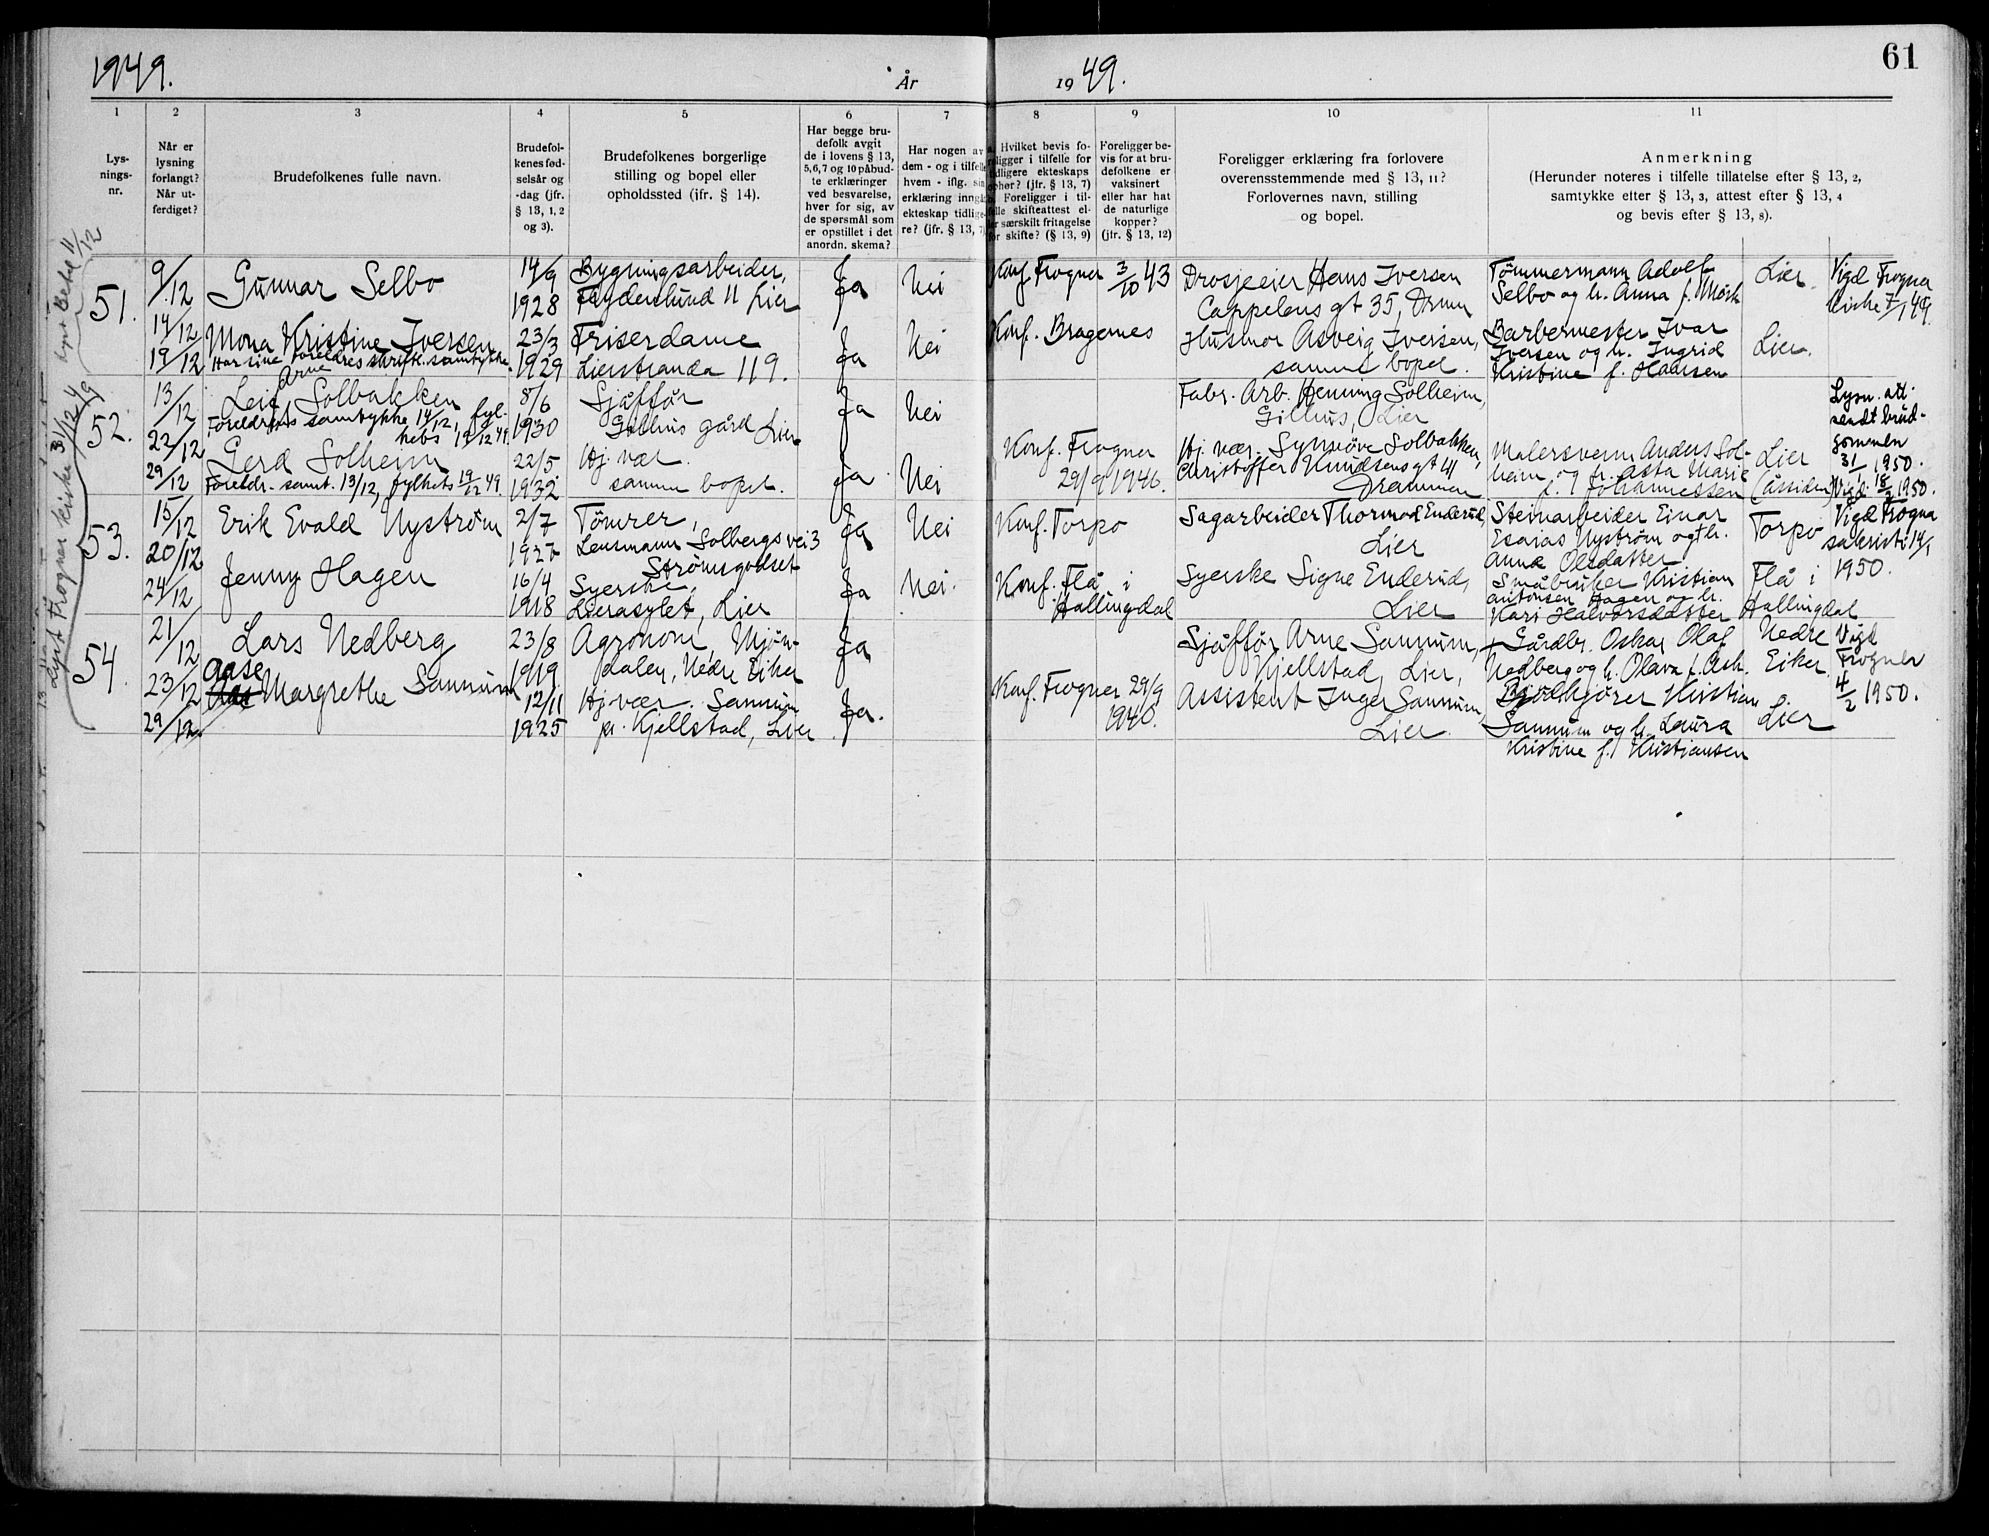 1949.
År
19 49.
61
1
Lys-
nings-
nr.
2
Når er
lysning
forlangt?
Når ut-
ferdiget?
3
Brudefolkenes fulle navn.
4
Brudefol-
kenes fød-
selsår og
-dag (jfr.
§ 13, 1, 2
og 3).
5
Brudefolkenes borgerlige
stilling og bopel eller
opholdssted (jfr. § 14).
6
Har begge bru-
defolk avgit
de i lovens § 13,
5,6,7 og 10 påbud-
te erklæringer
ved besvarelse,
hver for sig, av
de spørsmål som
er opstillet i det
anordn. skema?
7
Har nogen av
dem - og i tilfelle
hvem - iflg. sin
erklæring inngåt
ekteskap tidlige-
re? (jfr. § 13, 7)
8
Hvilket bevis fo-
religger i tilfelle for
tidligere ekteskaps
ophør? (jfr. § 13, 7)
Foreligger i til-
felle skifteattest el-
ler særskilt fritagelse
for skifte? (§ 13, 9)
9
Foreligger be-
vis for at bru-
defolkene er
vaksinert
eller har hat
de naturlige
kopper?
(jfr. § 13, 12)
10
Foreligger erklæring fra forlovere
overensstemmende med § 13, 11?
Forlovernes navn, stilling
og bopel.
11
Anmerkning
(Herunder noteres i tilfelle tillatelse efter § 13, 2,
samtykke efter § 13, 3, attest efter § 13, 4
og bevis efter § 13, 8).
11/12
Lyst Frogner kirke 31/12 49
51.
9/12
14/12
19/12
Gunnar Selbo
14/9
1928
Bygningsarbeider,
11 Lier
Ja
Nei
Konf. Frogner 3/10 43
Drosjeeier Hans Iversen
Cappelens gt 35, Drmn
Tømmermann Adolf
Selbo og h. Anna f. Mørk
Lier.
Vigd Frogner
kirke 7/1 49.
Mona Kristine Iversen
Har sine foreldres skriftl. samtykke.
23/3
1929
Friserdame
Lierstranda 119.
Ja
Nei
Konf. Bragernes
Husmor Asveig Iversen,
samme bopel.
Barbermester Ivar
Iversen og h. Ingrid
Kristine f. Hansen
Lier.
52.
13/12
22/12
29/12
Arne
Leif Solbakken
Foreldrets samtykke 14/12, fyl-
kets 19/12 49.
8/6
1930
Sjåffør
Gilhus gård Lier
Ja
Nei
Fabr. Arb. Henning Solheim,
Gilhus, Lier
Lysn. att.
sendt brud-
gommen
31/1 1950.
Gerd Solheim
Foreldr. samt. 13/12, fylkets 19/12 49.
22/5
1932
Hj. vær.
samme bopel.
Ja
Nei
Konf. Frogner
29/9 1946.
Hj. vær. Synnøve Solbakken,
Christoffer Knudsens gt 41
Drammen
Malersvenn Anders Sol-
heim og h. Asta Marie
f. Johannessen
Lier
(Åssiden)
Vigd 18/2 1950.
53.
15/12
20/12
24/12
Erik Evald Nystrøm
2/7
1927
Tømrer,
Lensmann Solbergs vei 3
Strømsgodset
Ja
Nei
Konf. Torpo
Sagarbeider Thormod Enderud,
Lier
Steinarbeider Einar
Esaias Nystrøm og h.
Anne Olsdatter
Torpo
Vigd Frogner
sakristi 14/1
1950.
Jenny Hagen
16/4
1918
Syerske,
Lierasylet, Lier
Ja
Nei.
Konf. Flå i
Hallingdal
Syerske Signe Enderud,
Lier
Småbruker Kristian
Antonsen Hagen og h.
Kari Halvorsdatter
Flå i
Hallingdal
54.
21/12
23/12
29/12
Lars Nedberg
23/8
1919
Agronom, Mjøn-
dalen, Nedre Eiker
Ja
Sjåffør Arne Sannum,
Kjellstad, Lier,
Gårdbr. Oskar Olaf
Nedberg og h. Olava f. Ask.
Nedre
Eiker
Vigd
Frogner
4/2 1950.
Aase
Margrethe Sannum
12/11
1925
Hj. vær. Sannum
pr. Kjellstad, Lier
Ja.
Konf. Frogner 29/9
1940.
Assistent Inger Sannum,
Lier.
Kristian
Sannum og h. Laura
Kristine f. Kristiansen
Lier